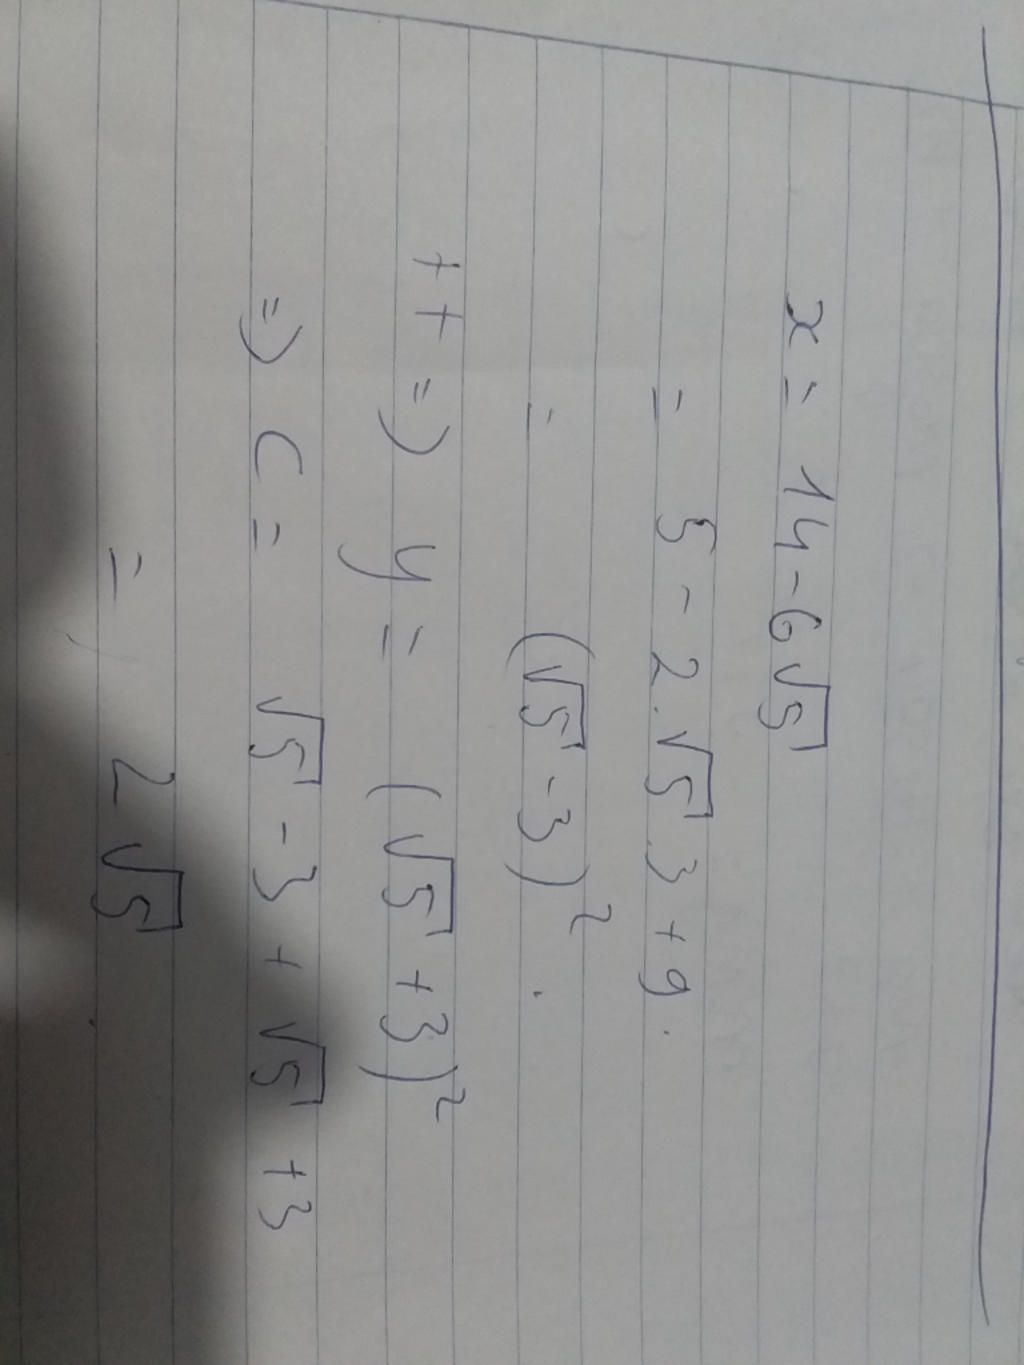 x = 14 - 6√5
= 5 - 2.√5.3 + 9.
= (√5 - 3)² .
tt => y = (√5 + 3)²
=> C = √5 - 3 + √5 + 3
= 2√5